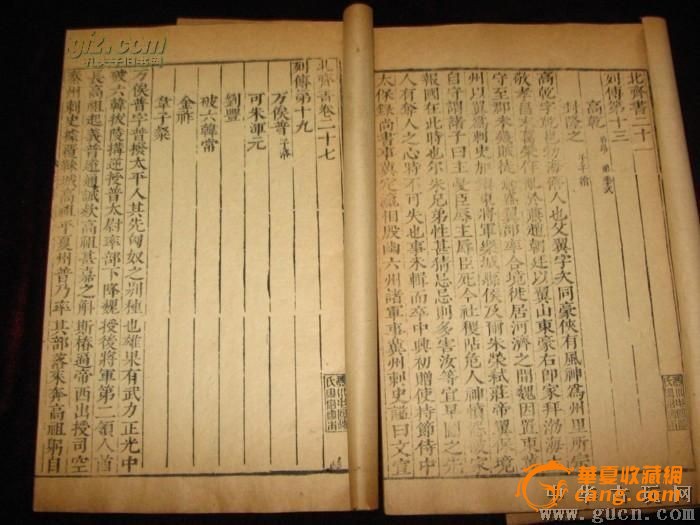 北齊書二十一
列傳第十三
高乾 弟慎 弟昂 弟季式
封隆之 子子繪
高乾字乾邕渤海蓨人也父翼字次同豪俠有風神為州里所宗
敬孝昌末葛榮作亂於燕趙朝廷以翼山東豪右即家拜渤海太
守至郡未幾賊徒愈盛翼部率合境徙居河濟之間魏因置東冀
州以翼為刺史加鎮東將軍樂城縣侯及爾朱榮弒莊帝翼保境
自守謂諸子曰主憂臣辱主辱臣死今社稷阽危人神憤怨破家
報國在此時也尒朱兄弟性甚猜忌忌則多害汝等宜早圖之先
人有奪人之心時不可失也事未輯而卒中興初贈使持節侍中
太保錄尚書事冀定瀛相殷幽六州諸軍事冀州刺史諡曰文宣
北齊書卷二十七
列傳第十九
万俟普 子洛
可朱渾元
劉豐
破六韓常
金祚
韋子粲
万俟普字普撥太平人其先匈奴之別種也雄果有武力正光中
破六韓拔陵搆逆授普太尉率部下降魏授後將軍第二領人酋
長高祖起義普遠通誠款高祖甚嘉之斛斯椿逼帝西出授司空
秦州刺史據覆靺城高祖平夏州普乃率其部落來奔高祖躬自
華夏收藏網
cang.com
中华古玩网
www.gucn.com